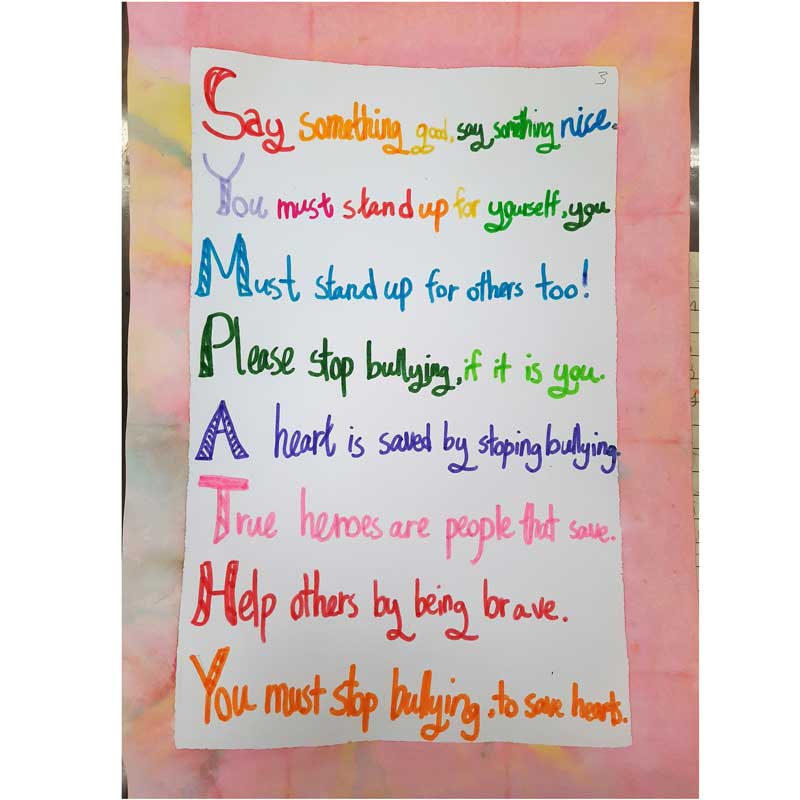 3
Say something good, say something nice.
You must stand up for yourself, you
Must stand up for others too!
Please stop bullying, if it is you.
A heart is saved by stoping bullying.
True heroes are people that save.
Help others by being brave.
You must stop bullying, to save hearts.